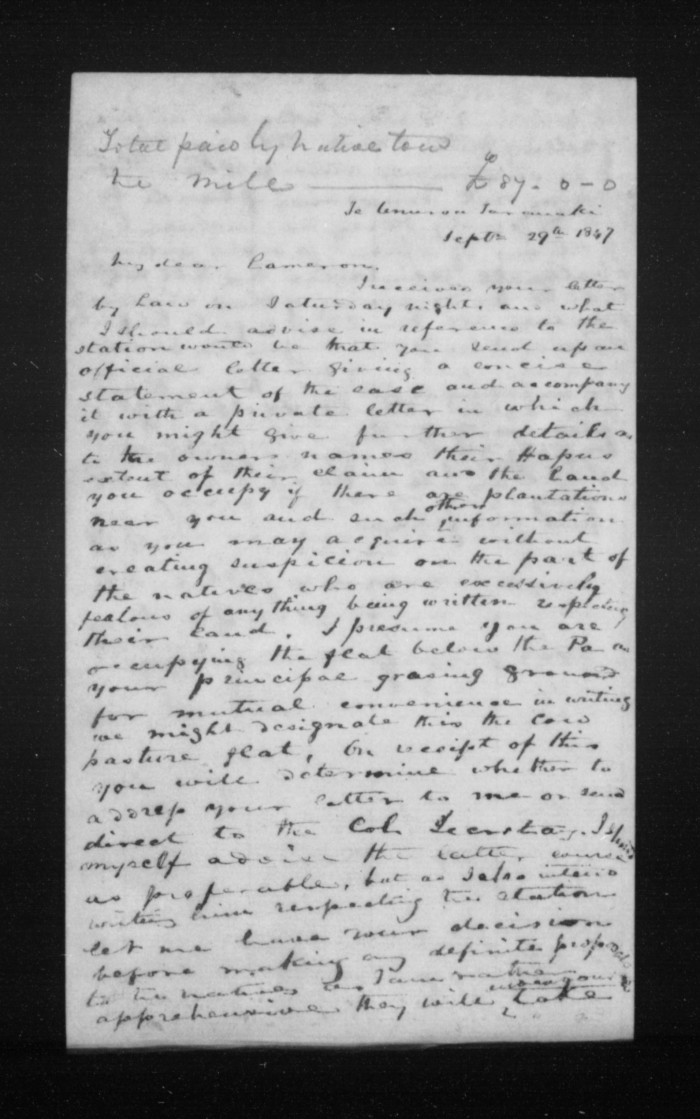 Total paid by natives tow
the Mill —— £87-0-0
Te Umuroa Taranaki
Septr 29th 1847
My dear Cameron.
I received your letter
by Law on Saturday night, and what
I should advise in reference to the
station would be that you send up an
official letter giving a concise
statement of the case and accompany
it with a private letter in which
you might give further details as
to the owners names their Hapus
extent of their claim and the land
you occupy if there are plantations
near you and such other information
as you may acquire without
creating suspicion on the part of
the natives who are excessively
jealous of anything being written respecting
their land. I presume you are
occupying the flat below the Pa as
your principal grasing ground
for mutual convenience in writing
we might designate this the cow
pasture flat, On receipt of this
you will determine whether to
address your letter to me or send
direct to the Col. Secretary. I should
myself advise the latter course
as preferable, but as I also intend
writing him respecting the station
let me have your decision
before making any definite proposals
to the natives as I am rather
apprehensive they will take